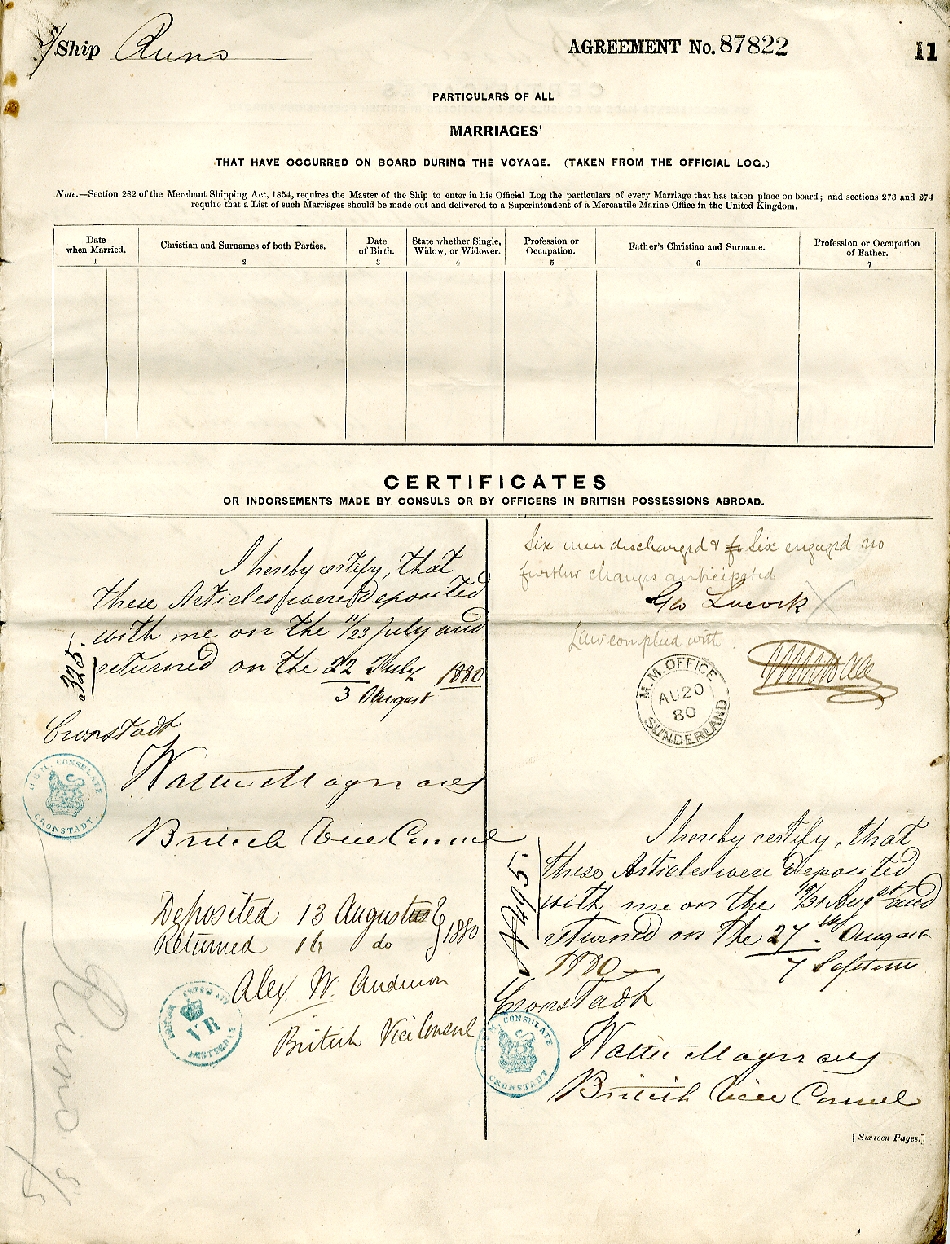 S/Ship Runo
AGREEMENT No. 87822
11
PARTICULARS OF ALL
MARRIAGES
THAT HAVE OCCURRED ON BOARD DURING THE VOYAGE. (TAKEN FROM THE OFFICIAL LOG.)
Note.—Section 282 of the Merchant Shipping Act, 1854, requires the Master of the Ship to enter in his Official Log the particulars of every Marriage that has taken place on board; and sections 273 and 274
require that a List of such Marriages should be made out and delivered to a Superintendent of a Mercantile Marine Office in the United Kingdom.
Date when Married. 1
Christian and Surnames of both Parties. 2
Date of Birth. 3
State whether Single, Widow, or Widower. 4
Profession or Occupation. 5
Father's Christian and Surname. 6
Profession or Occupation of Father. 7
CERTIFICATES
OR INDORSEMENTS MADE BY CONSULS OR BY OFFICERS IN BRITISH POSSESSIONS ABROAD.
I hereby certify, that
these Articles were deposited
with me on the 11/23 July and
returned on the 22 July 1880
3 August
Cronstadt
CONSULATE
CRONSTADT
British Vice Consul
Deposited 13 August 1880
Returned 16 do
Alex W. Anderson
British Vice Consul
VR
Runo S/S
Six men discharged & Six engaged no
further changes anticipated
Geo Lucock
Law complied with
M.M. OFFICE
AU 20
80
SUNDERLAND
I hereby certify, that
these Articles were deposited
with me on the Aug and
returned on the 27 August
7 Septem
1880
Cronstadt
CONSULATE
CRONSTADT
British Vice Consul
[Sixteen Pages.]